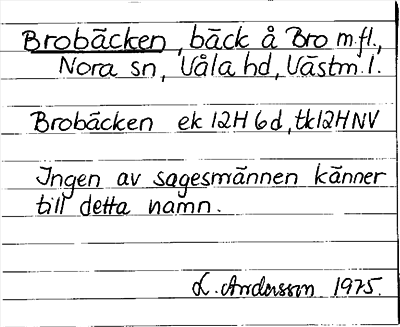 Brobäcken, bäck å Bro m.fl.,
Nora sn, Våla hd, Västm.l.
Brobäcken ek 12H6d, tk12HNV
Ingen av sagesmännen känner
till detta namn.
L. Andersson 1975.